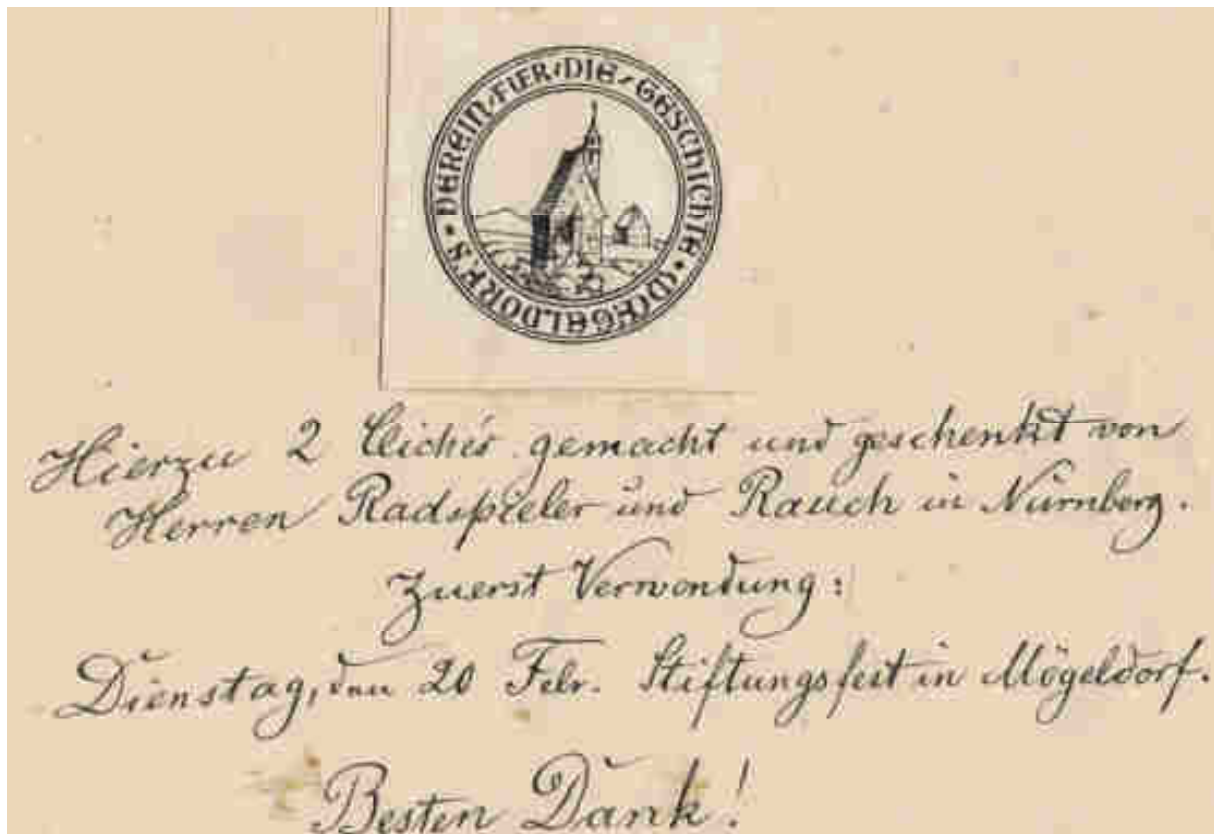 · VEREIN · FUER · DIE · GESCHICHTE · MOEGELDORFS
Hierzu 2 Clichés gemacht und geschenkt von
Herren Radspieler und Rauch in Nürnberg.
Zuerst Verwendung:
Dienstag, den 20 Febr. Stiftungsfest in Mögeldorf.
Besten Dank!